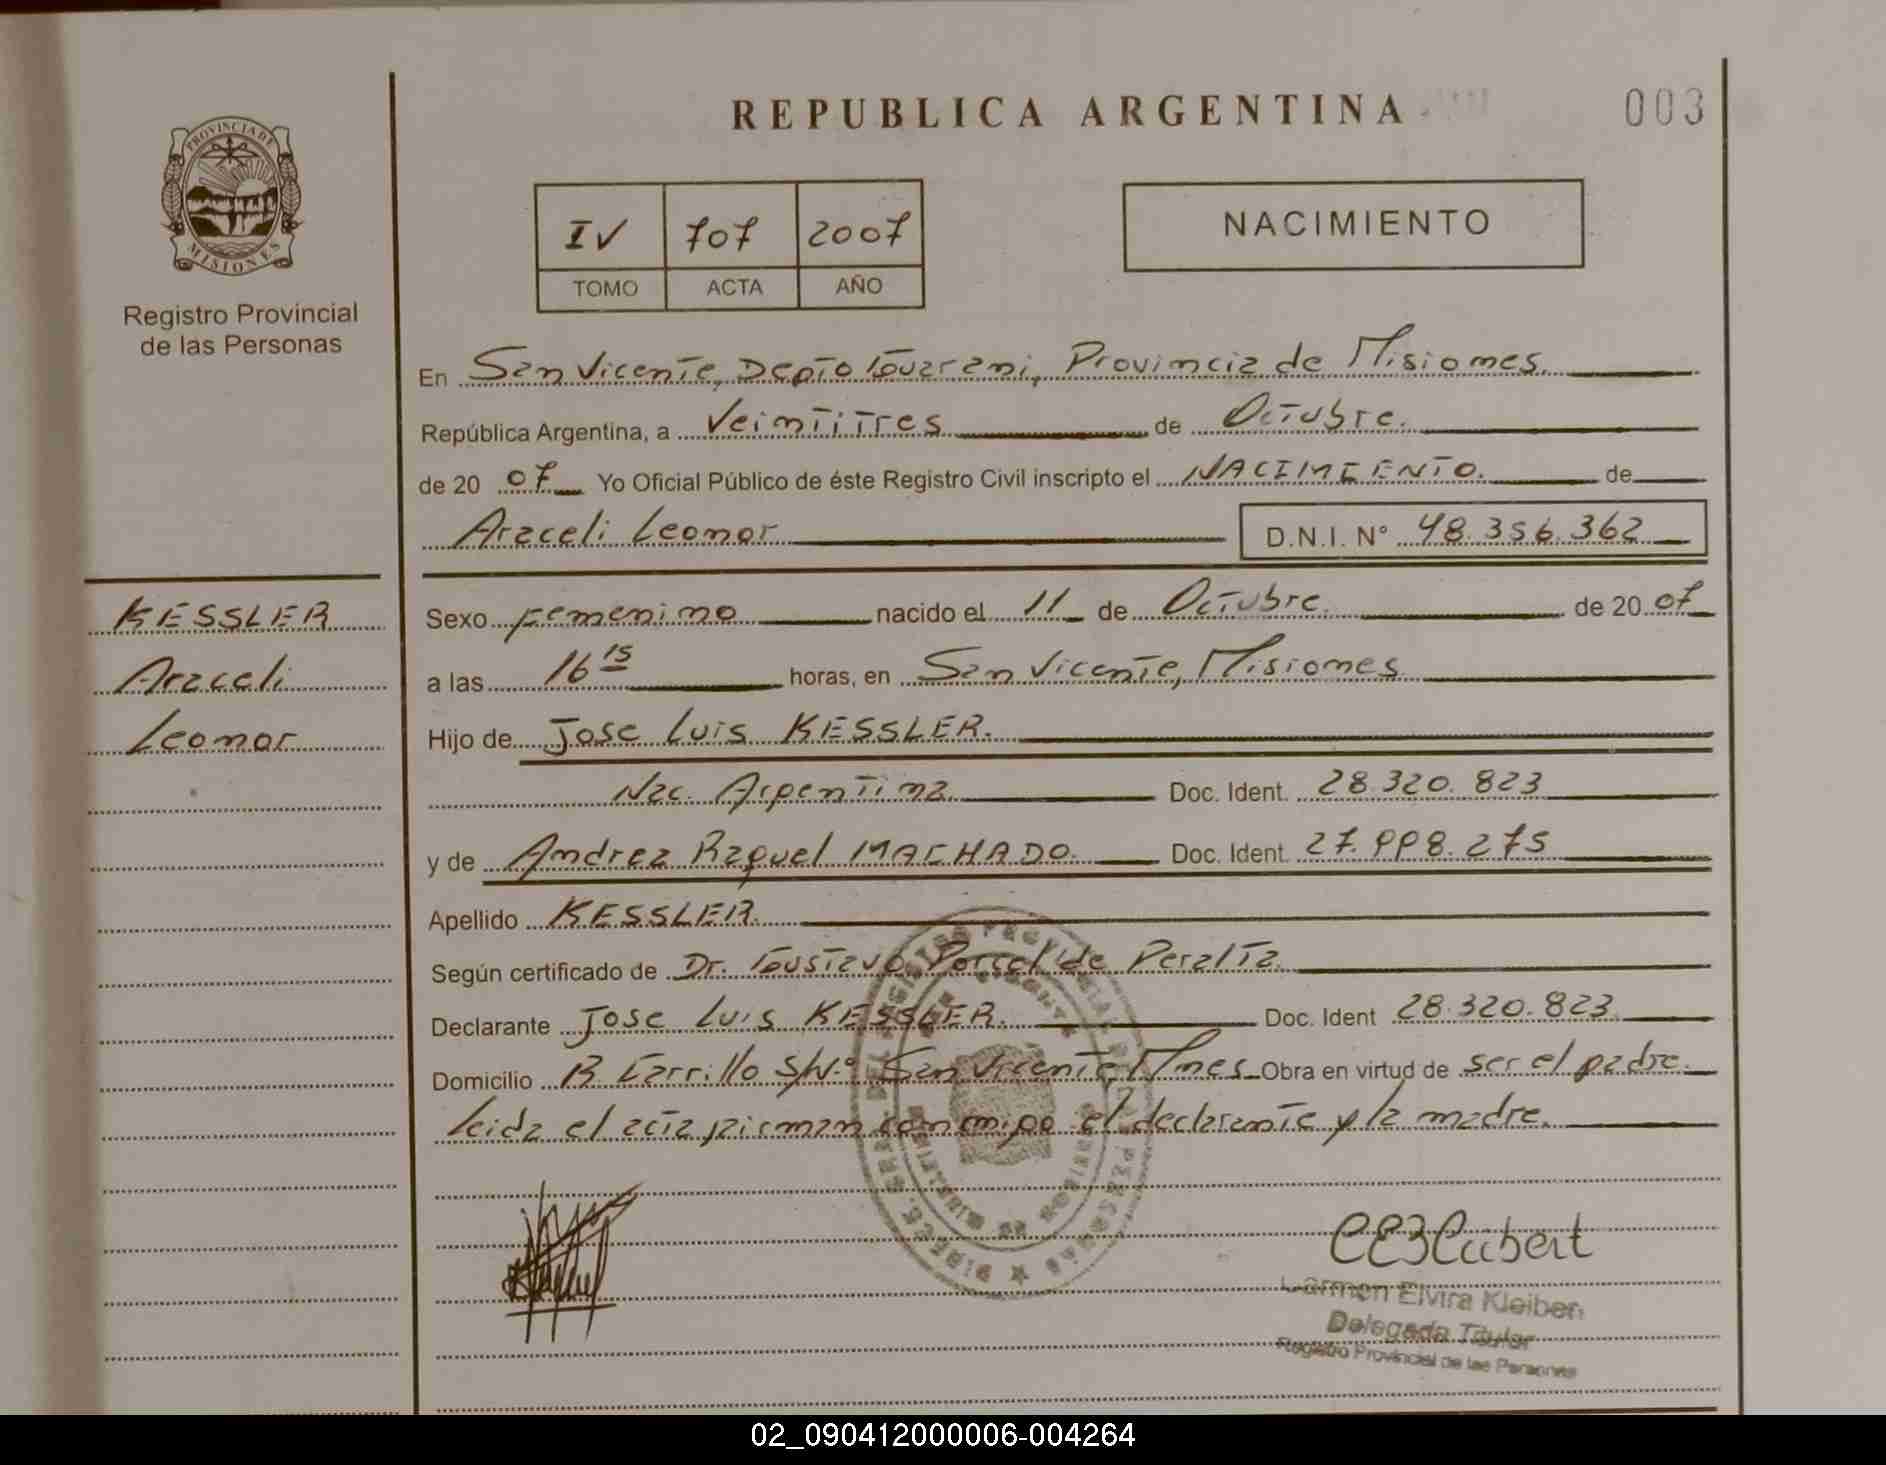 REPUBLICA ARGENTINA
003
PROVINCIA DE
MISIONES
Registro Provincial
de las Personas
IV 707 2007
TOMO ACTA AÑO
NACIMIENTO
En San Vicente, Depto Guarani, Provincia de Misiones.
República Argentina, a Veintitres de Octubre.
de 20 07 Yo Oficial Público de éste Registro Civil inscripto el NACIMIENTO. de
Araceli Leonor D.N.I. N° 48.356.362
KESSLER
Araceli
Leonor
Sexo Femenino nacido el 11 de Octubre. de 20 07
a las 16 15 horas, en San Vicente, Misiones
Hijo de Jose Luis KESSLER.
Nac. Argentina. Doc. Ident. 28.320.823
y de Andrea Raquel MACHADO. Doc. Ident. 27.998.275
Apellido KESSLER.
Según certificado de Dr. Gustavo Porcel de Peralta.
Declarante Jose Luis KESSLER. Doc. Ident 28.320.823
Domicilio R Carrillo S/N.° San Vicente, Mnes Obra en virtud de ser el padre.
Leida el acta, firman conmigo el declarante y la madre.
Carmen Elvira Kleibert
Delegada Titular
Registro Provincial de las Personas
02_090412000006-004264